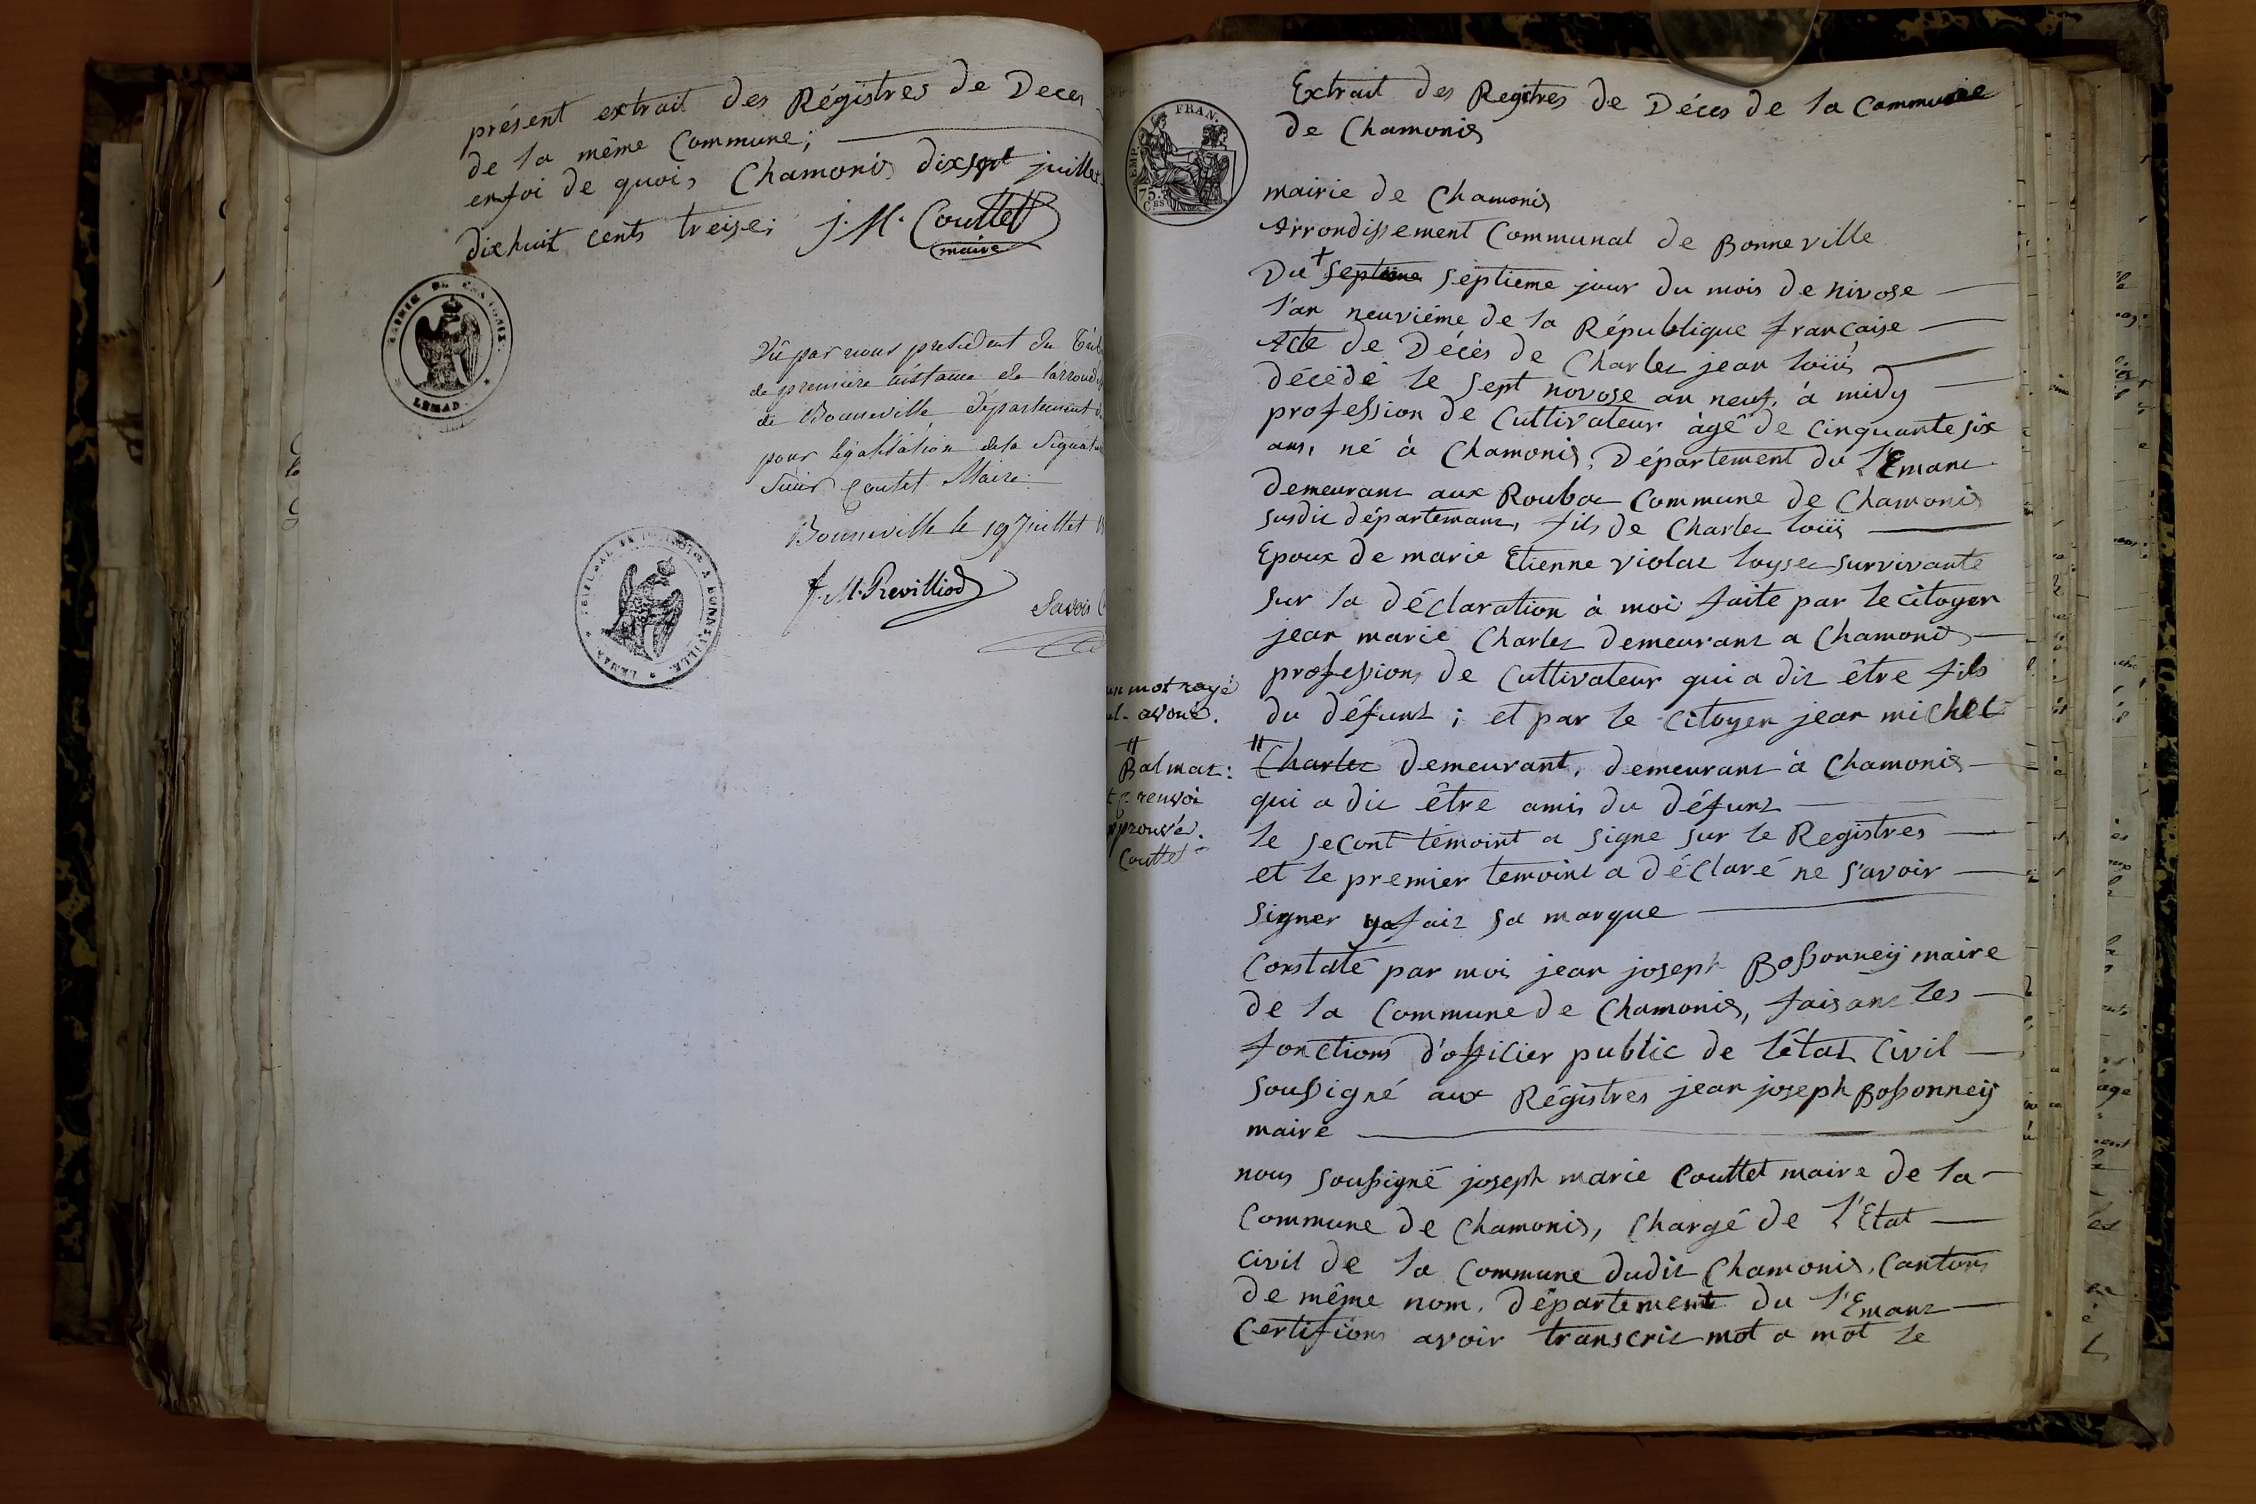 présent extrait des Régistres de Deces
de la même Commune;
enfoi de quoi, Chamonis dixsept juillet
dixhuit cents treise; J. M. Couttet
maire
MAIRIE DE CHAMONIX.
LEMAN
Vû par nous president du
de premiere instance de larrond
de Bonneville departement
pour légalisation dela Signatu
Sieur Coutet Maire
Bonneville le 19 Juillet
J. M. Revilliod
TRIBUNAL DE A BONNEVILLE
LEMAN
EMP. FRAN.
75.
CES
Extrait des Regitres de Déces de la Commune
de Chamonis
mairie de Chamonis
Arrondissement Communal de Bonneville
Du + septième septieme jour du mois de nivose
l'an neuviéme de la République française
Acte de Décés de Charlet jean loüis
décédé le sept novose an neuf, à midy
profession de Cultivateur àgé de cinquante six
ans, né à Chamonis, Département du l'Emant
demeurant aux Roubat Commune de Chamonis
susdit départemant, fils de Charlet loüis
Epoux de marie Etienne violat loyset survivante
sur la déclaration à moi faite par le citoyen
jean marie Charlet demeurant a Chamonis
profession de Cultivateur qui a dit être fils
du défunt; et par le citoyen jean michel
un mot rayé
nul. avoué.
"
Balmat:
et p. renvoi
approuvé.
Couttet
" Charlet demeurant, demeurant à Chamonis
qui a dit être amis du défunt
le secont témoint a signe sur le Registres
et le premier temoint a déclaré ne s'avoir
signer ya fait sa marque
Constaté par moi jean joseph Bossonneÿ maire
de la Commune de Chamonis, faisant les
fonctions d'officier public de l'état Civil
soussigné aux Régistres jean joseph Bossonneÿ
maire
nous soussigné joseph marie Couttet maire de la
Commune de Chamonis, Chargé de l'Etat
civil de la Commune dudit Chamonis, Canton
de même nom, Département du l'Emant
Certifions avoir transcrit mot a mot le